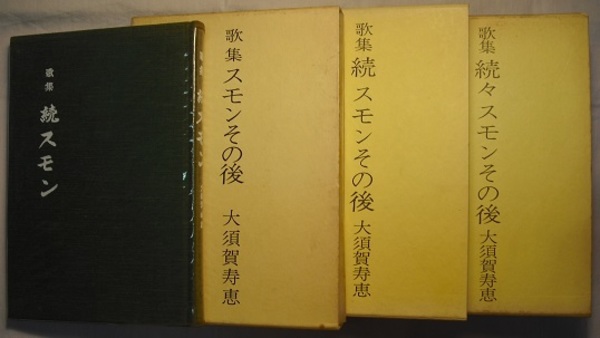 歌集 続スモン
歌集 スモンその後 大須賀寿恵
歌集 続スモンその後 大須賀寿恵
歌集 続々スモンその後 大須賀寿恵